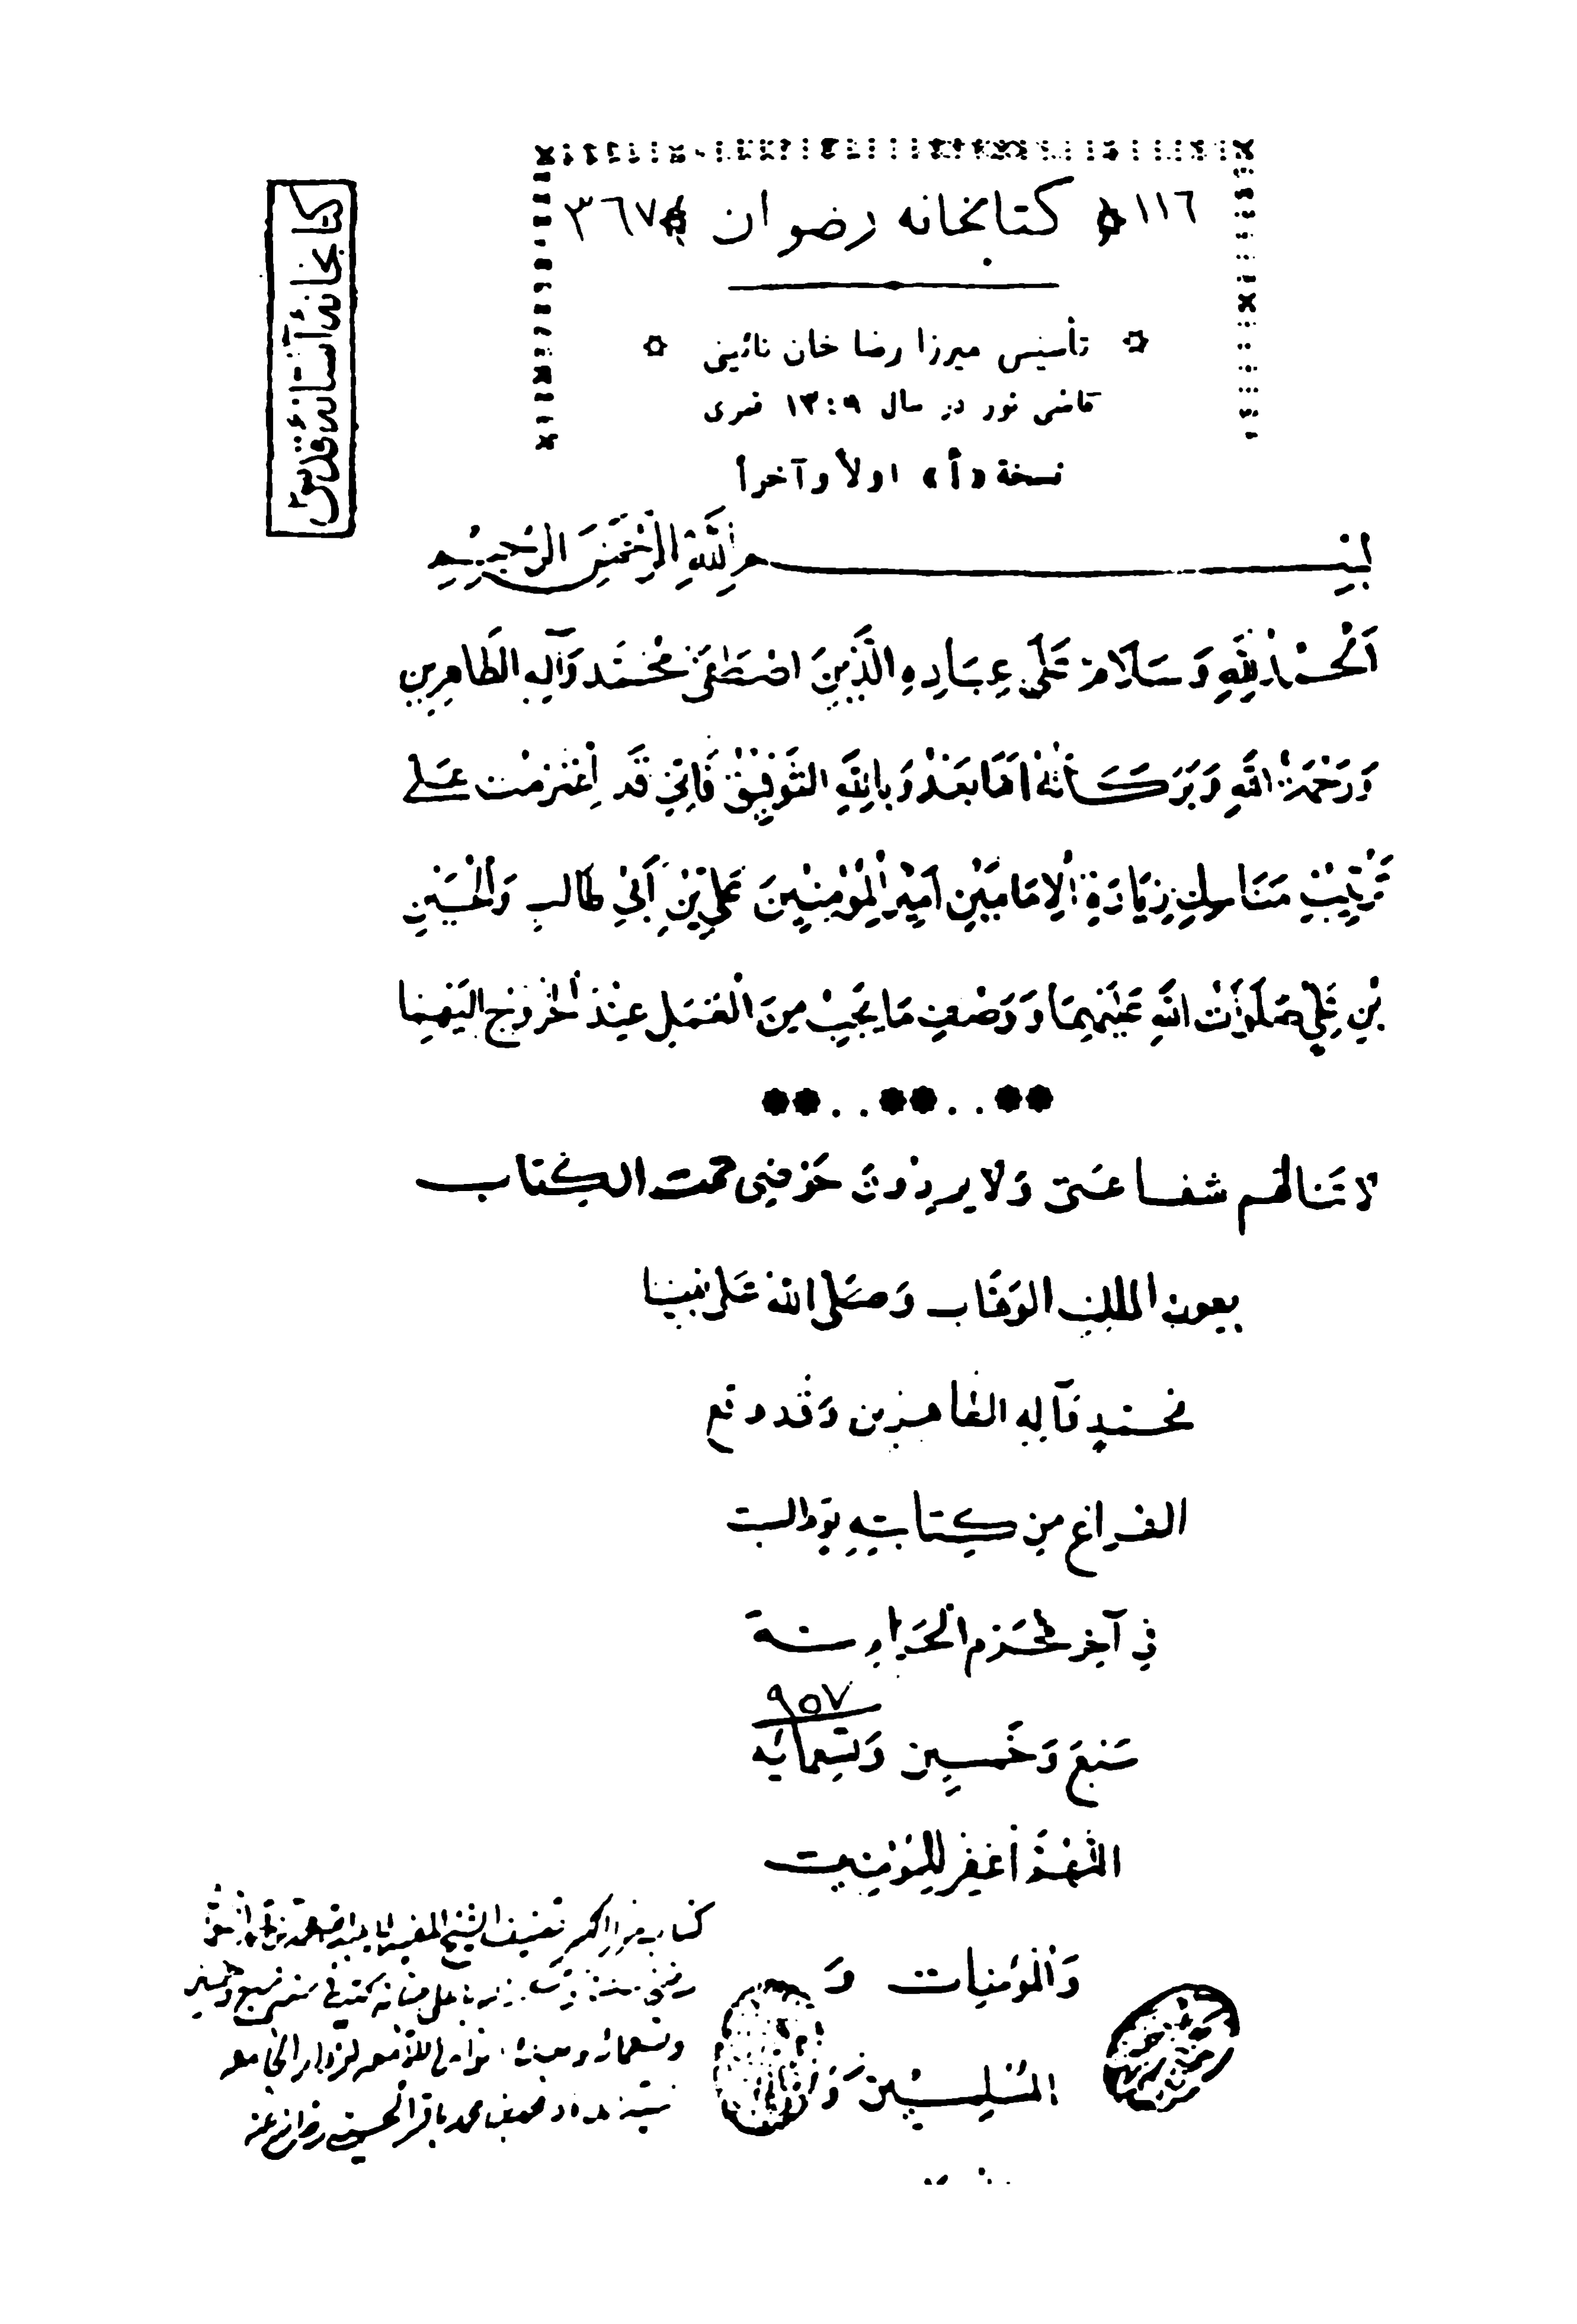 ١١٦ كتابخانه رضوان ٣٦٧
تأسيس ميرزا رضا خان نائينى
قاضى نور در سال ١٣٠٩ قمرى
كتابخانهٔ آستانهٔ قدس
نسخة «أ» اولاً وآخراً
بِسْمِ اللَّهِ الرَّحْمَنِ الرَّحِيمِ
اَلْحَمْدُ لِلَّهِ وَسَلَامٌ عَلَى عِبَادِهِ الَّذِينَ اصْطَفَى مُحَمَّد وَآلِهِ الطَّاهِرِين
وَرَحْمَةُ اللَّهِ وَبَرَكَاتُهُ اَمَّا بَعْدُ وَبِاللَّهِ التَّوفِيقُ فَإِنِّي قَد اِعْتَزَمْت عَلى
تَرْتِيْبِ مَنَاسِكِ زِيَارَةِ الْاِمَامَيْنِ اَمِيْرِ الْمُؤْمِنِيْنَ عَلِيِّ بْنِ اَبِيْ طَالِبٍ وَالْحُسَيْنِ
بْنِ عَلِيٍّ صَلَوَاتُ اللَّهِ عَلَيْهِمَا وَوَصْفِ مَا يَجِبُ مِنَ الْعَمَلِ عِنْدَ الْخُرُوْجِ اِلَيْهِمَا
لا تَنَالهُم شفاعَتى وَلا يردُونَ حَوضِى تمت الكِتاب
بعون الملك الوَهَّاب وَصَلى اللهُ عَلى نبينا
مُحمَّدٍ وَآلِهِ الطَّاهِرِين وَقَد وقع
الفراغ مِن كِتابتِهِ يَوم السبت
فِي آخِر مُحَرَّم الحَرَام سنة
٩٥٧
سَبْعَ وَخَمسِين وَتِسعمائه
اللَّهُمَّ اغفِر لِلمُؤمِنِين
وَالمُؤمِنات وَ
المُسْلِمِيْن وَ
كتاب تصنيف الشيخ المفيد
وتسعمائة
محمد باقر الحسينى